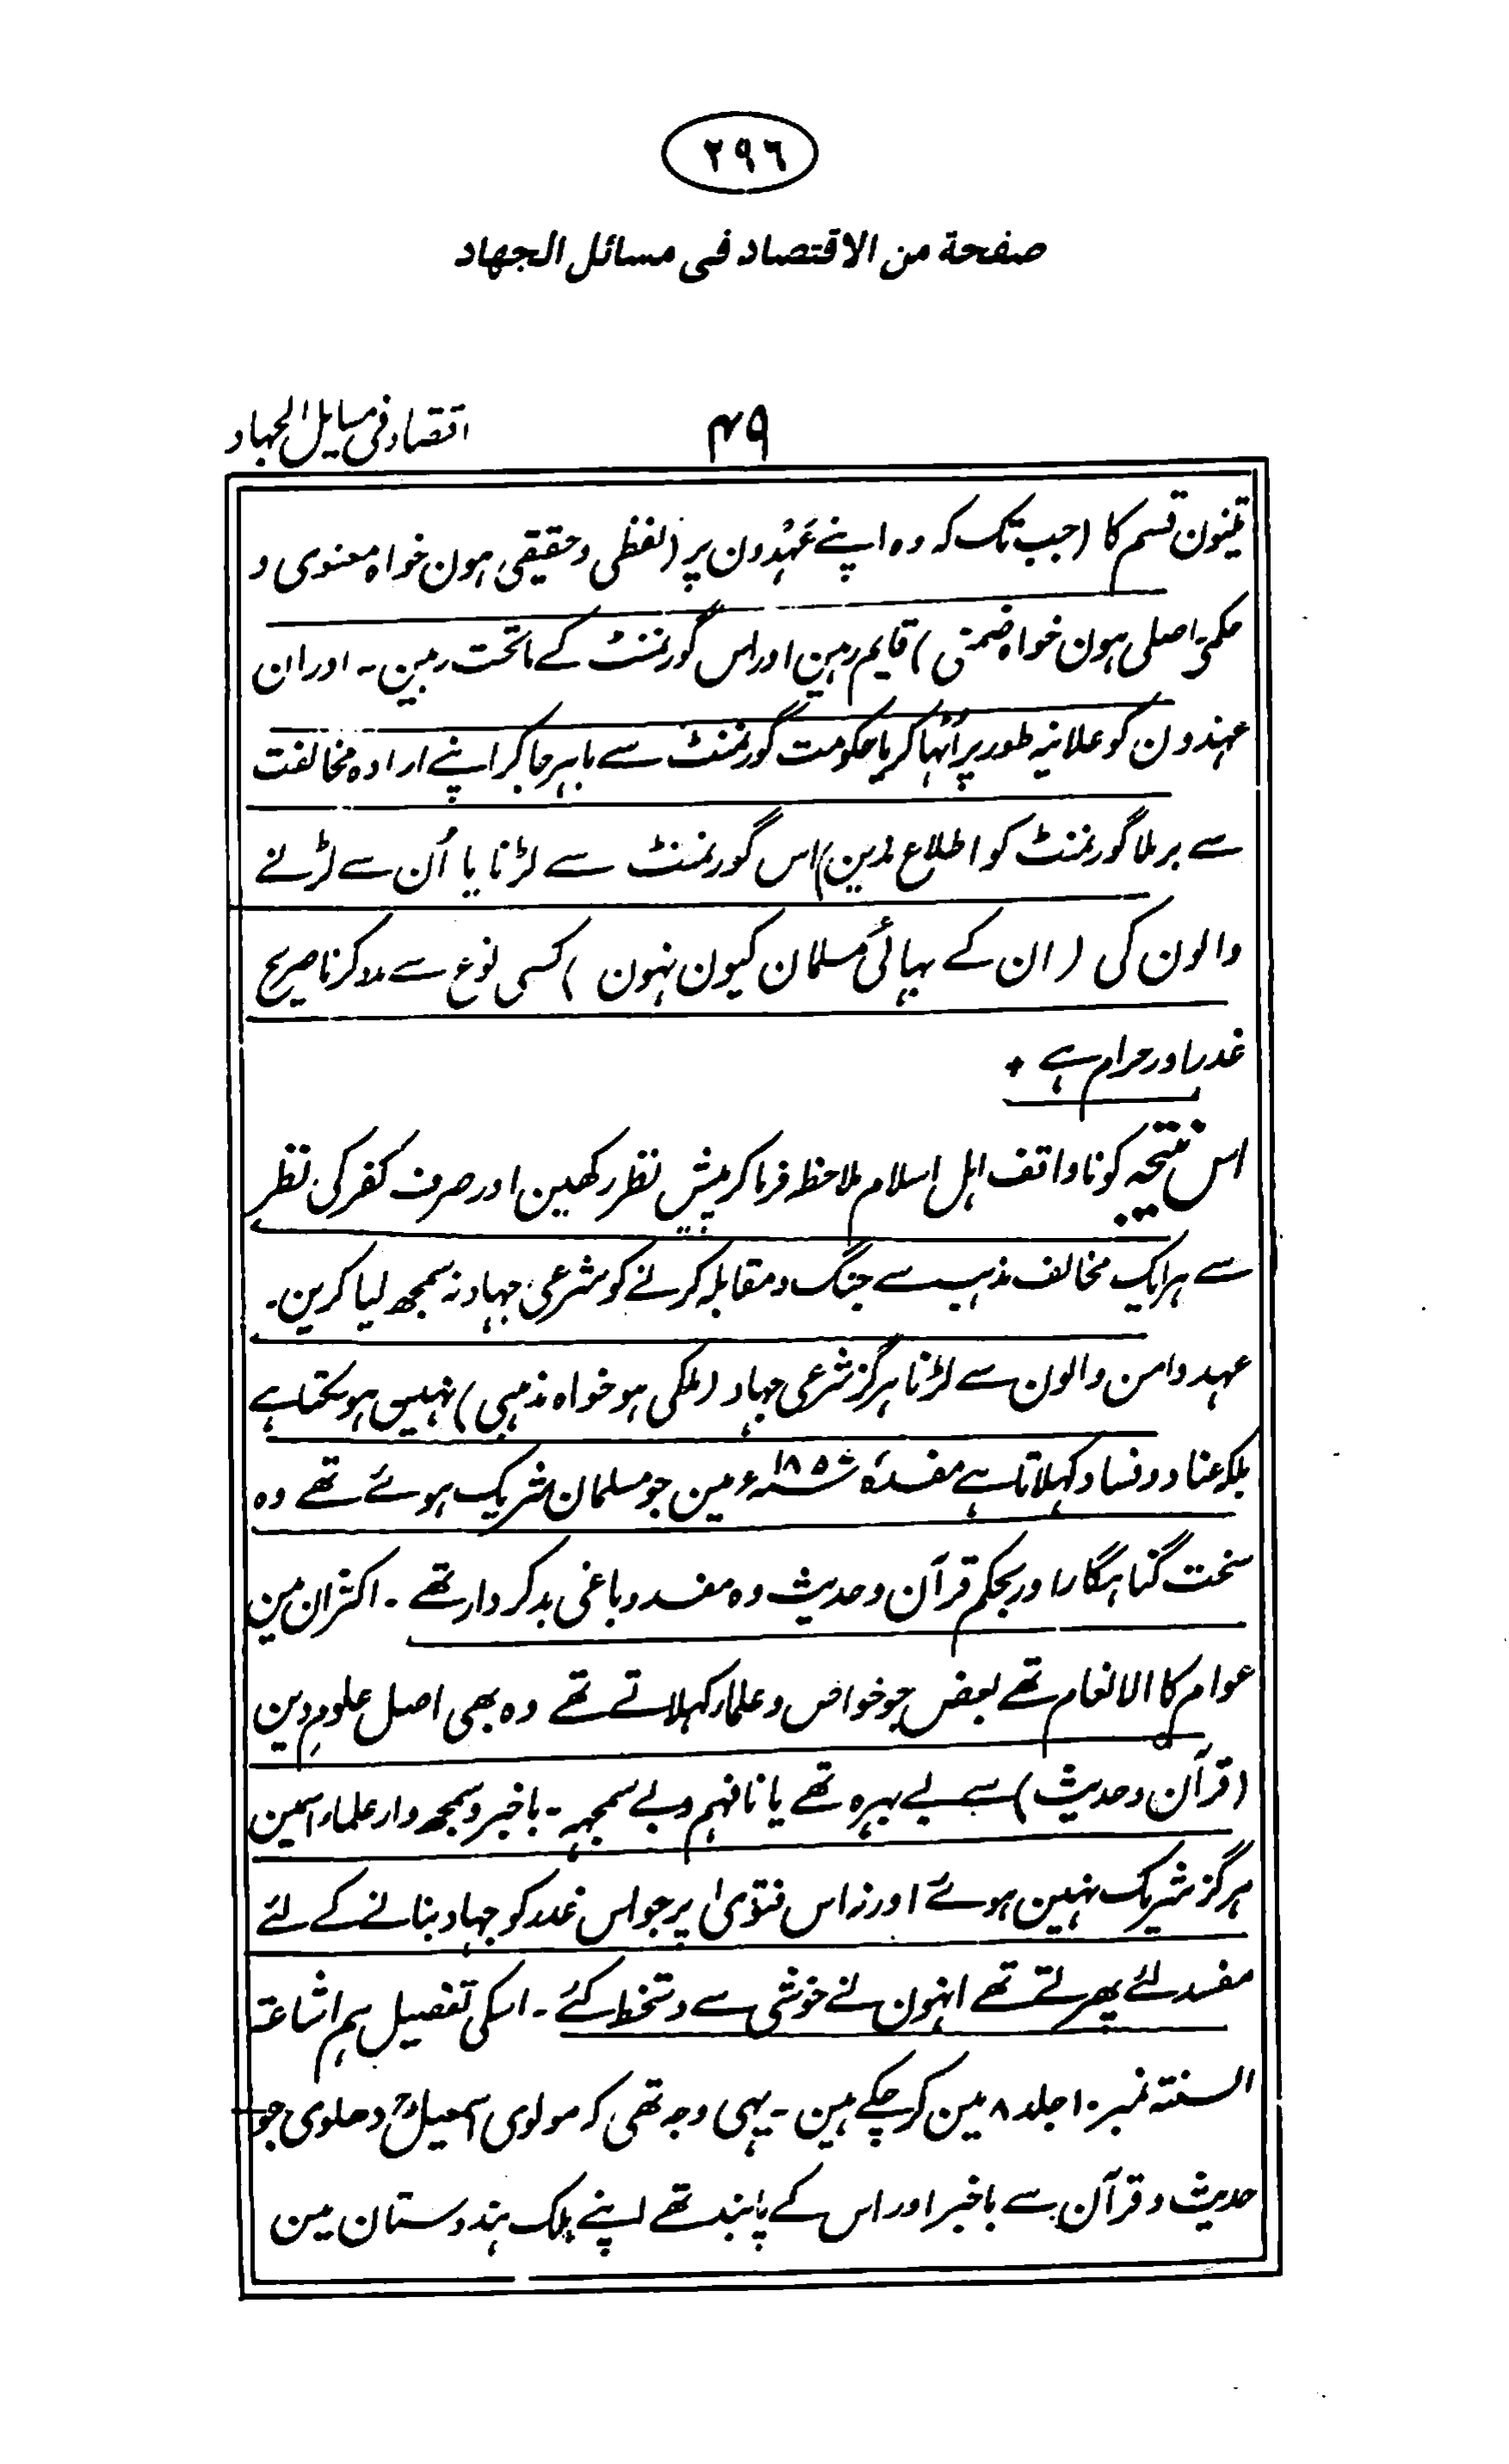 ٢٩٦
صفحة من الاقتصاد في مسائل الجهاد
اقتصاد فی مسایل الجہاد
۴۹
تینون قسم کا (جب تک کہ وہ اپنے عَہْدون پر (لفظی و حقیقی ہون خواہ معنوی و
حکمی۔ اصلی ہون خواہ ضمنی) قایم رہین اور اس گورنمنٹ کے ماتحت رہین۔ اور ان
عہدون کو علانیہ طور پر اُٹہا کر یا حکومت گورنمنٹ سے باہر جا کر اپنے ارادہ مخالفت
سے برملا گورنمنٹ کو اطلاع ندین) اس گورنمنٹ سے لڑنا یا اُن سے لڑنے
والون کی (ان کے بہائی مسلمان کیون نہون) کسی نوع سے مدد کرنا صریح
غدر اور حرام ہے +
اس نتیجہ کو ناواقف اہل اسلام ملاحظہ فرما کر پیش نظر رکھین اور صرف کفر کی نظر
سے ہر ایک مخالف مذہب سے جنگ و مقابلہ کرنے کو شرعی جہاد نہ سمجھ لیا کرین۔
عہد و امن والون سے لڑنا ہرگز شرعی جہاد (ملکی ہو خواہ مذہبی) نہیں ہو سکتا ہے
بلکہ عناد و فساد کہلاتا ہے مفسدہ ۱۸۵۷ء مین جو مسلمان شریک ہوئے تھے وہ
سخت گناہگار اور بحکم قرآن و حدیث وہ مفسد و باغی بدکردار تھے۔ اکثر ان مین
عوام کالانعام تھے بعض جو خواص و علماء کہلاتے تھے وہ بھی اصل علومِ دین
(قرآن و حدیث) سے بے بہرہ تھے یا نافہم و بے سمجہہ۔ باخبر و سمجھ دار علماء اسمین
ہرگز شریک نہین ہوئے اور نہ اس فتویٰ پر جو اس غدر کو جہاد بنانے کے لئے
مفسد لئے پھرتے تھے انہون نے خوشی سے دستخط کئے۔ اسکی تفصیل ہم اشاعۃ
السنۃ نمبر ۱۰ جلد ۸ مین کر چکے ہین۔ یہی وجہ تھی کہ مولوی اسمعیلؒ دھلوی جو
حدیث و قرآن سے باخبر اور اس کے پابند تھے اپنے ملک ہندوستان مین